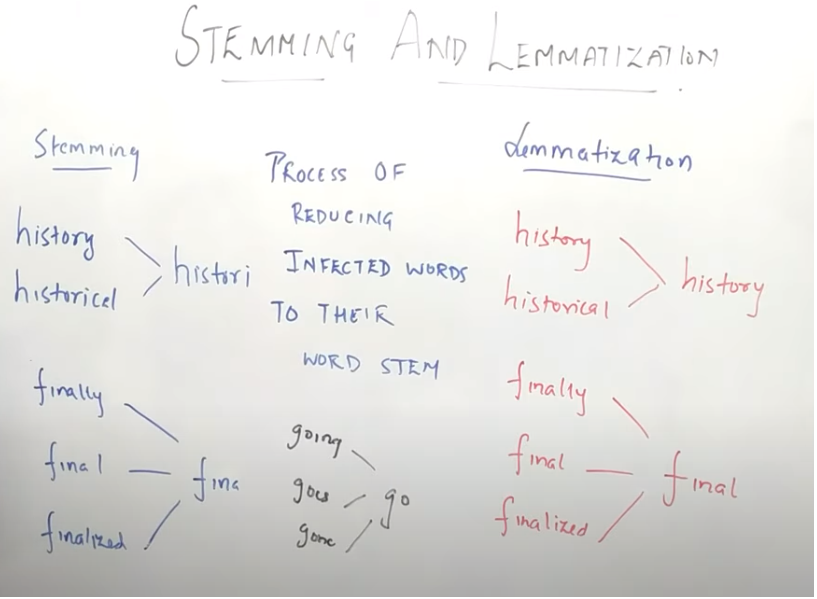 STEMMING AND LEMMATIZATION
Stemming
history
historical
histori
finally
final
finalized
fina
PROCESS OF
REDUCING
INFECTED WORDS
TO THEIR
WORD STEM
going
goes
gone
go
Lemmatization
history
historical
history
finally
final
finalized
final